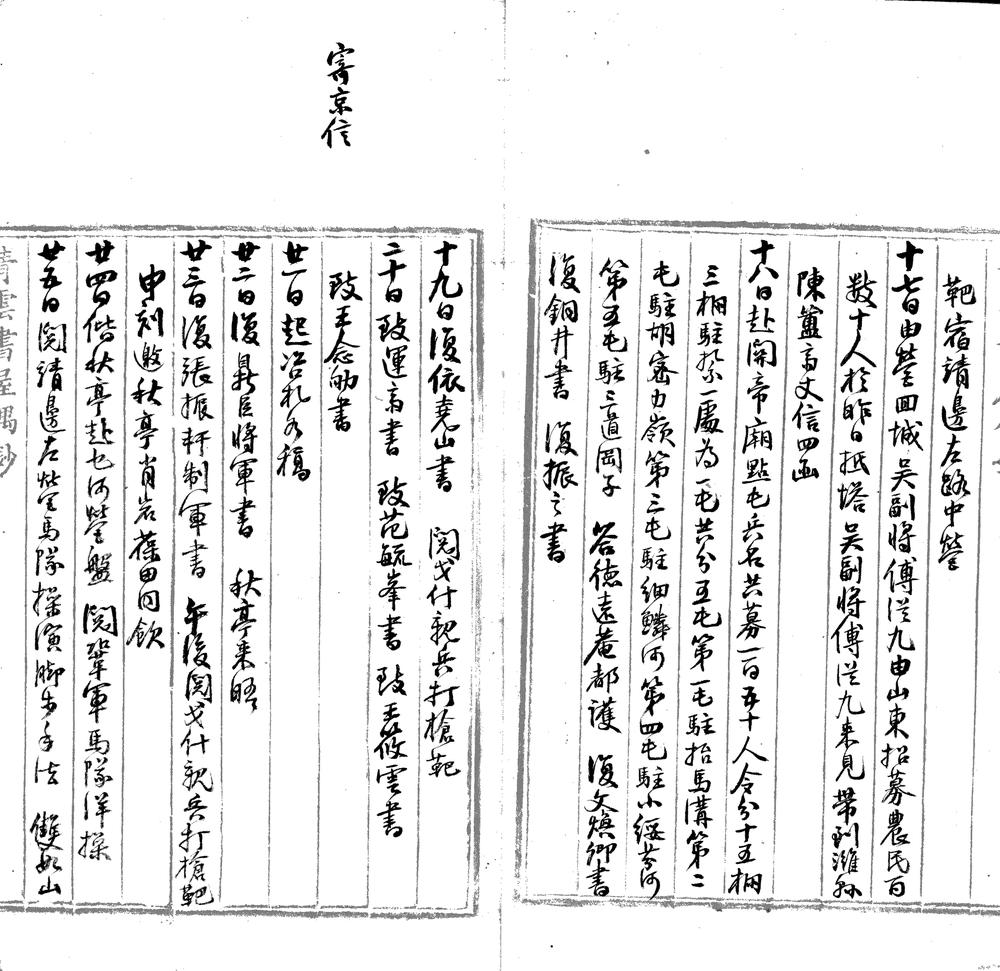 靶宿靖邊左路中營
十七日由營回城吳副將傅從九由山東招募農民百
數十人於昨日抵塔吳副將傅從九來見帶到濰縣
陳簠齋丈信四函
十八日赴關帝廟點屯兵名共募一百五十人令分十五棚
三棚駐紮一處為一屯共分五屯第一屯駐抬馬溝第二
屯駐胡密力嶺第三屯駐細鱗河第四屯駐小綏芬河
第五屯駐二道岡子 答德遠菴都護 復文煥卿書
復銅井書 復振之書
寄京信
十九日復依堯山書 閱戈什親兵打槍靶
二十日致運齋書 致范毓峯書 致王筱雲書
致王念劬書
廿一日起咨札各稿
廿二日復鼎臣將軍書 秋亭來晤
廿三日復張振軒制軍書 午後閱戈什親兵打槍靶
申刻邀秋亭肖岩葆田同飲
廿四日偕秋亭赴乜河營盤 閱鞏軍馬隊洋操
廿五日閱靖邊左營馬隊操演腳步手法 雙如山
青雲書屋偶鈔